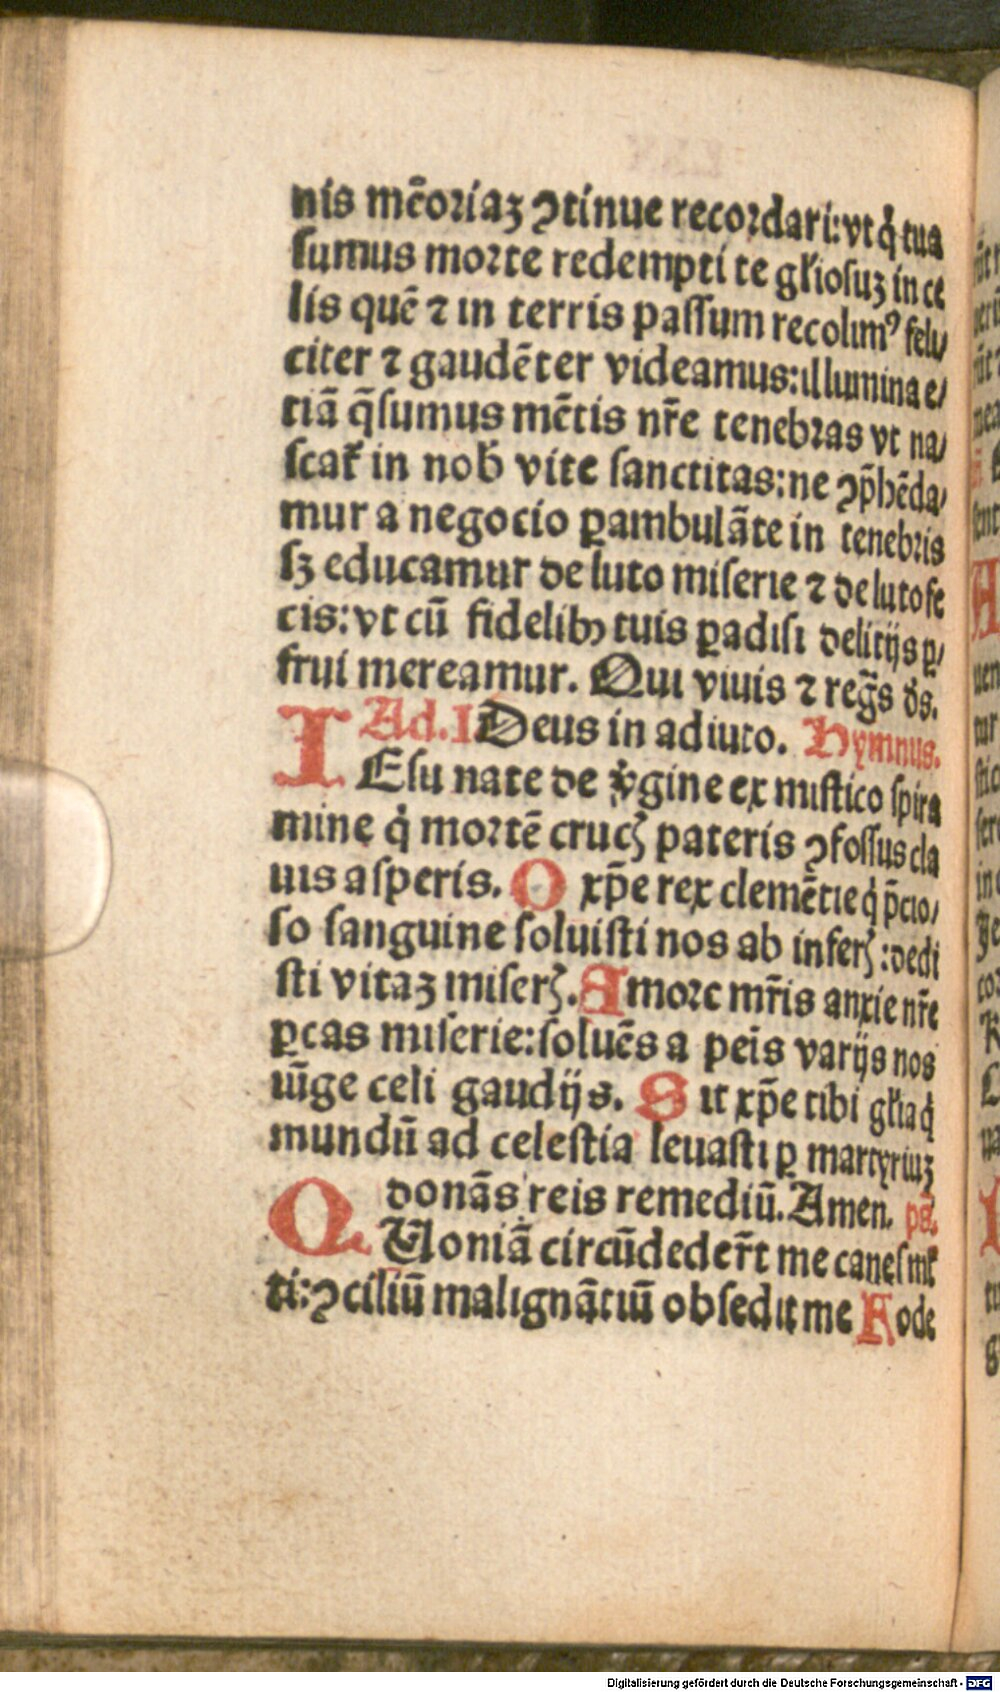 nis mēoꝛiaꝫ ꝯtinue recoꝛdari:vt qͥ tua
ſumus moꝛte redempti te gl̓ioſuꝫ in ce
lis quē ⁊ in terris paſſum recolimꝰ feli/
citer ⁊ gaudēter videamus:illumina e/
tiā q̄ſumus mētis nr̄e tenebꝛas vt na/
ſcat̓ in nob̓ vite ſanctitas:ne ꝯp̄hēda/
mur a negocio ꝑambulāte in tenebꝛis
ſꝫ educamur de luto miſerie ⁊ de luto fe
cis:vt cū fidelibꝫ tuis ꝑadiſi delitijs ꝑ/
frui mereamur. Qui viuis ⁊ reḡs d̓s.
Ad.I Deus in adiuto. Hymnus.
IEſu nate de v̓gine ex miſtico ſpira
mine qͥ moꝛtē crucꝭ pateris ꝯfoſſus cla
uis aſperis. O xp̄e rex clemētie qͥ p̄cio/
ſo ſanguine ſoluiſti nos ab inferꝭ:dedi
ſti vitaꝫ miſerꝭ. Amoꝛe mr̄is anxie nr̄e
ꝑcas miſerie:ſoluēs a peīs varijs nos
iūge celi gaudijs. Sit xp̄e tibi gl̓ia qͥ
mundū ad celeſtia leuaſti ꝑ martyriuꝫ
donās reis remediū. Amen. pſ̄.
QUoniā circūdeder̄t me canes ml̓
ti:ꝯciliū malignātiū obſedit me Fode
Digitalisierung gefördert durch die Deutsche Forschungsgemeinschaft - DFG